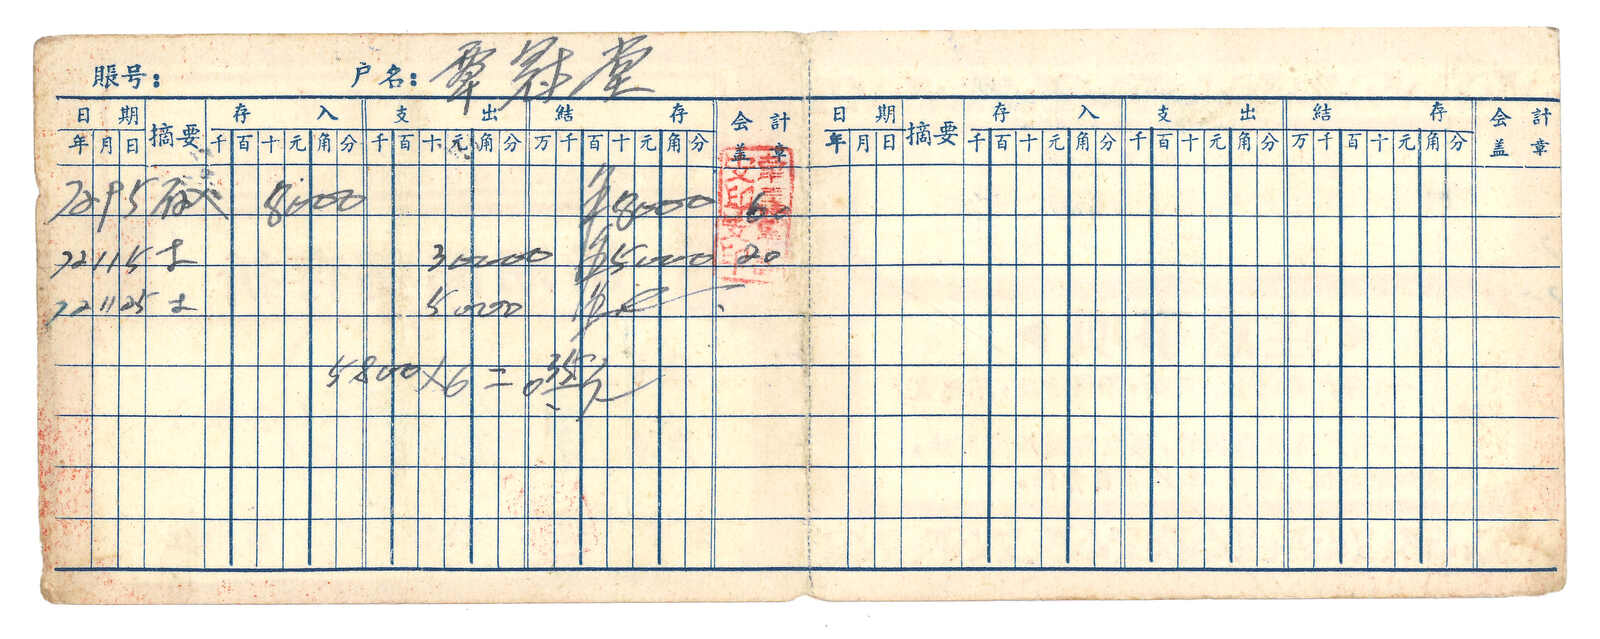 賬号： 户名：覃冠堂
日期 摘要 存入 支出 結存 会計盖章 日期 摘要 存入 支出 結存 会計盖章
年 月 日 千 百 十 元 角 分 千 百 十 元 角 分 万 千 百 十 元 角 分 年 月 日 千 百 十 元 角 分 千 百 十 元 角 分 万 千 百 十 元 角 分
72 9 5 存入 8000 8000 60
72 11 5 支 3000 5000 20
72 11 25 支 5000
5800×6=0.35元